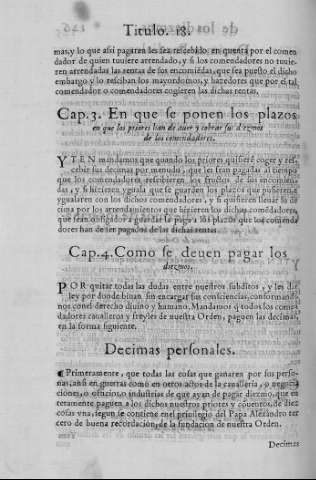 Titulo. 18.
mas, y lo que assi pagaren les sea rescebido en quenta por el comen
dador de quien tuuiere arrendado, y si los comendadores no tuuie
ren arrendadas las rentas de sus encomiédas, que sea puesto el dicho
embargo, y lo resciban los mayordomos, y hazedores que por el tal
comendador o comendadores cogieren las dichas rentas.
Cap. 3. En que se ponen los plazos
en que los priores han de auer y cobrar sus diezmos
de los comendadores.
YTEN mandamos que quando los priores quisieré coger y res
cebir sus diezmos por menudo, que les sean pagadas al tiempo
que los comendadores rescibieren los fructos de sus encomien
das, y si hizieren yguala que se guarden los plazos que pusieren, e
ygualaren con los dichos comendadores, y si quisieren lleuar su de
cima por los arrendamientos que hizieren los dichos comédadores,
que sean obligados a guardar la paga a los plazos que los comenda
dores han de ser pagados de las dichas rentas.
Cap. 4. Como se deuen pagar los
diezmos.
POR quitar todas las dudas entre nuestros subditos, y les dar
ley por donde biuan sin encargar sus consciencias, conformando
nos conel derecho diuino y humano. Mandamos q̃ todos los comé
dadores caualleros y freyles de nuestra Orden, paguen las decimas,
en la forma siguiente.
Decimas personales.
¶ Primeramente, que todas las cosas que ganaren por sus perso-
nas, assi en guerras como en otros actos de la caualleria, o negocia
ciones, o officios, o industrias de que ayan de pagar diezmo, que en
teramente paguen a los dichos nuestros priores y cóuentos, de diez
cosas vna, segun se contiene enel priuilegio del Papa Alexandro ter
cero de buena recordacion, de la fundacion de nuestra Orden.
Decimas